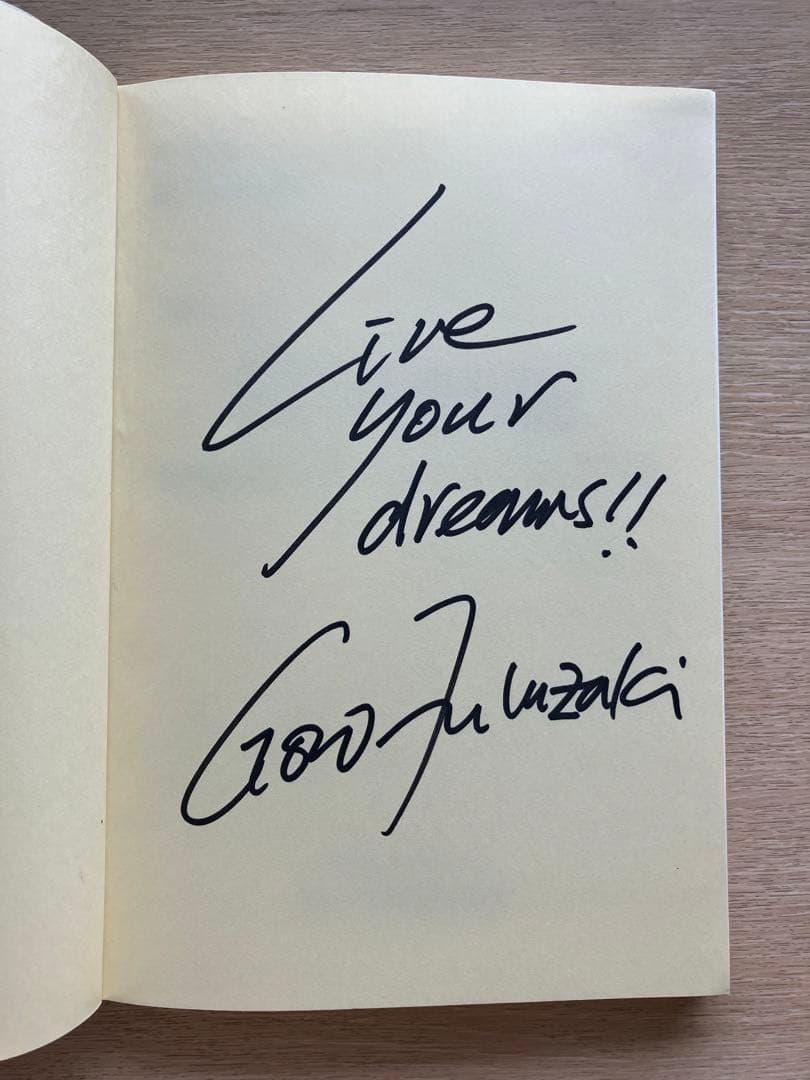 Live
your
dreams!!
Goro Fukuzaki